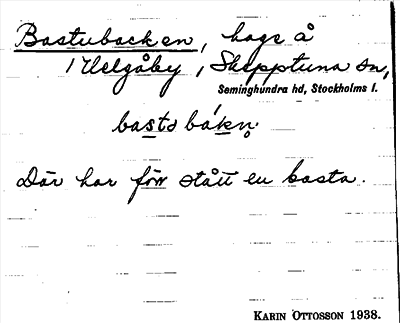 Bastubacken, hage å
1 Helgåby, Skepptuna sn,
Seminghundra hd, Stockholms l.
bastobákn̥.
Där har förr stått en basta.
KARIN OTTOSSON 1938.